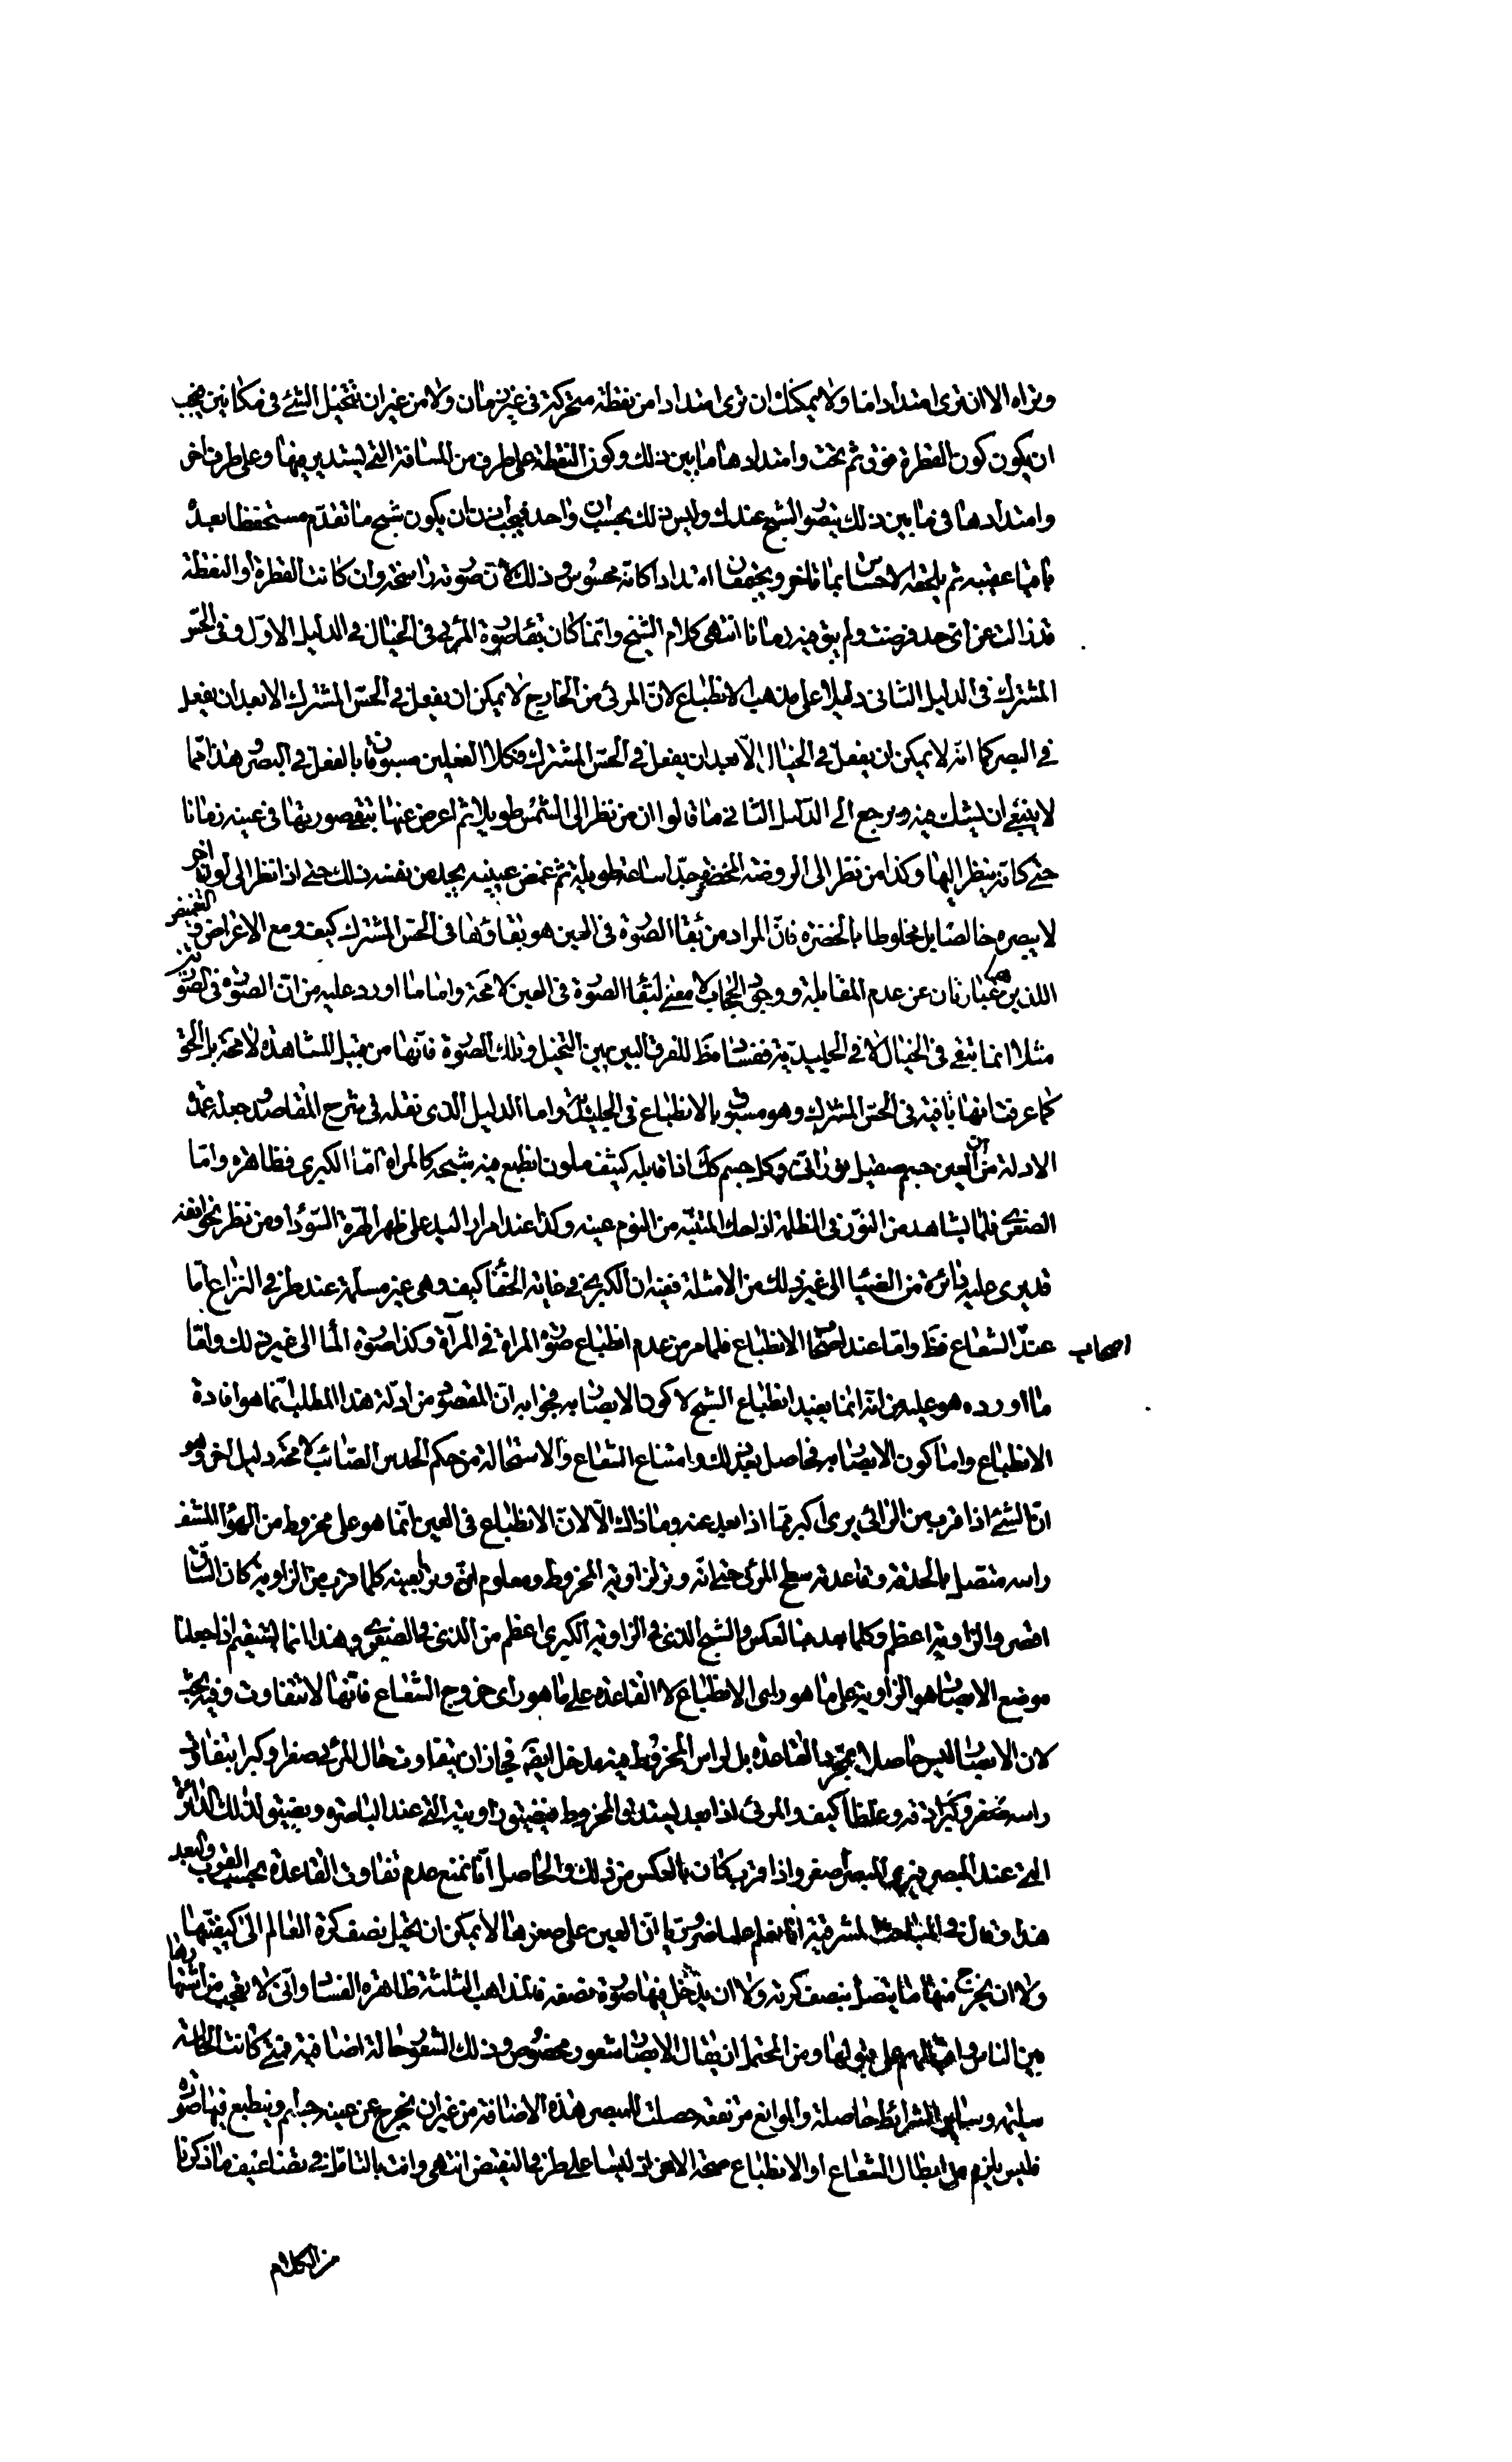 وتراه الا ان ترى امتدادا ما ولا يمكنك ان ترى امتدادا من نقطة متحركة فى غير زمان ولا من غير ان تتخيل الشئ فى مكانين فيجب
ان يكون كون القطرة فوق ثم تحت وامتدادها ما بين ذلك وكون النقطة على طرف من المسافة التى يستدير فيها وعلى طرف اخر
وامتدادها فى ما بين ذلك يتصور الشبح عندك وليس ذلك بحسب ان واحد فيجب اذن ان يكون شبح ما تقدم مستحفظا بعد
باقيا عقيبه ثم يلحقه الاحساس بما تاخر ويجتمعان امتدادا كانه محسوس وذلك لان صورته راسخة وان كانت القطرة او النقطة
قد زالت عن اى حد فرضت ولم يبق فيه زمانا انتهى كلام الشيخ وانما كان بقاء صورة المرئى فى الخيال فى الدليل الاول وفى الحس
المشترك فى الدليل الثانى دليلا على مذهب الانطباع لان المرئى من الخارج لا يمكن ان يفعل فى الحس المشترك الا بعد ان يفعل
فى البصر كما انه لا يمكن ان يفعل فى الخيال الا بعد ان يفعل فى الحس المشترك فكلا الفعلين مسبوقان بالفعل فى البصر وهذا مما
لا ينبغى ان يشك فيه ويرجع الى الدليل الثانى ما قالوا ان من نظر الى الشمس طويلا ثم اعرض عنها تبقى صورتها فى عينه زمانا
حتى كانه ينظر اليها وكذا من نظر الى الروضة المخضرة جدا ساعة طويلة ثم غمض عينيه يجد من نفسه ذلك حتى اذا نظر الى لون اخر
لا يبصره خالصا بل مخلوطا بالخضرة فان المراد من بقاء الصورة فى العين هو بقاؤها فى الحس المشترك كيف ومع الاعراض والتغميض
اللذين هما عبارتان عن عدم المقابلة ووجود الحجاب لا معنى لبقاء الصورة فى العين لا محة واما ما اورد عليه من ان الصورة فى الصورتين
مثلا انما تبقى فى الخيال لا فى الجليدية ففساده ظ للفرق البين بين التخيل وتلك الصورة فانها من قبيل المشاهدة لا محة بل الحق
كما عرفت انها باقية فى الحس المشترك وهو مسبوق بالانطباع فى الجليدية واما الدليل الذى نقله فى شرح المقاصد وجعله عمدة
الادلة من ان العين جسم صقيل نورانى وكل جسم كك اذا قابله كثيف ملون انطبع فيه شبحه كالمراة اما الكبرى فظاهرة واما
الصغرى فلما يشاهد من النور فى الظلمة اذا حك المنتبه من النوم عينه وكذا عند امرار اليد على ظهر الهرة السوداء ومن نظر نحو انفه
قد يرى عليه دائرة من الضياء الى غير ذلك من الامثلة ففيه ان الكبرى فى غاية الخفاء كيف وهى غير مسلمة عند طرفى النزاع اما
اصحاب عند الشعاع فظ واما عند اصحاب الانطباع فلما مر من عدم انطباع صورة المراة فى المرآة وكذا صورة الماء الى غير ذلك واما
ما اورده هو عليه من انه انما يفيد انطباع الشبح لا كون الابصار به فجوابه ان المقصود من ادلة هذا المطلب انما هو افادة
الانطباع واما كون الابصار به فحاصل بعد ذلك وامتناع الشعاع والاستحالة من حكم الحدس الصائب لا محة دليل اخر وهو
ان الشئ اذا قرب من الرائى يرى اكبر مما اذا بعد عنه وما ذاك الا لان الانطباع فى العين انما هو على مخروط من الهواء المشف
راسه متصل بالحدقة وقاعدته سطح المرئى حتى انه وتر لزاوية المخروط ومعلوم ان وترا بعينه كلما قرب من الزاوية كان الساقان
اقصر والزاوية اعظم وكلما بعد فبالعكس والشبح الذى فى الزاوية الكبرى اعظم من الذى فى الصغرى وهذا انما يستقيم اذا جعلنا
موضع الابصار هو الزاوية على ما هو راى الانطباع لا القاعدة على ما هو راى خروج الشعاع فانها لا تتفاوت وفيه بحث
لان الابصار ليس حاصلا بمجرد القاعدة بل لراس المخروط فيه مدخل ايضا فجاز ان يتفاوت حال المرئى صغرا وكبرا بتفاوت
راسه صغرا وكبرا دقة وغلظا كيف والمرئى اذا بعد يستدق المخروط فيضيق زاويته التى عند الباصرة ويضيق لذلك الدائرة
التى عند المبصر فيرى المبصر اصغر واذا قرب كان بالعكس من ذلك والحاصل انا نمنع عدم تفاوت القاعدة بحسب القرب والبعد
هذا وقال فى المباحث المشرقية انا نعلم علما ضروريا ان العين على صغرها لا يمكن ان يحيل نصف كرة العالم الى كيفيتها
ولا ان يخرج منها ما يتصل بنصف كرته ولا ان يدخل فيها صورة نصفه فالمذاهب الثلثة ظاهرة الفساد وانى لا تعجب من اشتهارها
بين الناس واقبالهم على قبولها ومن المحتمل ان يقال الابصار شعور مخصوص وذلك الشعور حالة اضافية فمتى كانت الحاسة
سليمة وسائر الشرائط حاصلة والموانع مرتفعة حصلت للمبصر هذه الاضافة من غير ان يخرج عن عينه جسم او ينطبع فيها صورة
فليس يلزم من ابطال الشعاع او الانطباع صحة الاخر اذ ليسا على طرفى النقيض انتهى وانت بالتامل فى تضاعيف ما ذكرنا
من الكلام